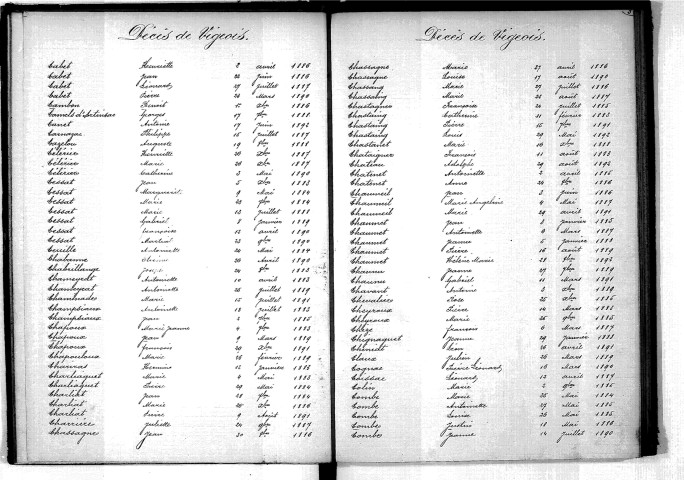 Décès de Vigeois.
Cabet Henriette 2 avril 1886
Cabet Jean 22 juin 1886
Cabet Léonard 27 juillet 1887
Cabet Pierre 21 Mars 1890
Cambon Benoit 5 Xbre 1886
Georges 17 1888
Canet Antoine 17 juin 1892
Carnazac Philippe 15 juillet 1887
Cazelou Auguste 19 1888
Célérier Henriette 20 Xbre 1887
Célérier Marie 20 Xbre 1887
Célérier Catherine 3 Mai 1890
Cessat Jean 5 Xbre 1883
Cessat Marguerite 9 Mai 1884
Cessat Marie 23 1884
Cessat Marie 13 juillet 1888
Cessat Gabriel 2 janvier 1889
Cessat Françoise 12 avril 1890
Cessat Martial 23 1890
Ceuille Antoinette 22 Mai 1884
Chabanne 20 Avril 1890
Chabrillange 24 1883
Chameyrat Antoinette 10 avril 1883
Chameyrat Antoinette 25 juillet 1889
Chaminades Marie 15 juillet 1891
Champsiaux Antoinette 18 juillet 1883
Champsiaux Jean 2 1885
Chapoux Marie Jeanne 4 1883
Chapoux Jean 9 Mars 1889
Chapoux François 20 Xbre 1891
Chapouloux Marie 26 février 1889
Charnas 12 janvier 1885
Charliaguet Marie 4 Mai 1883
Charliaguet Pierre 29 Mai 1884
Charliat Jean 18 1884
Charliat Marie 20 Xbre 1886
Charliat Pierre 9 Août 1891
Charrière Juliette 24 1887
Chassagne Jean 30 1886
Décès de Vigeois.
Chassagne Marie 27 avril 1886
Chassagne Louise 17 août 1890
Chassang Marie 27 juillet 1886
Chassang Marie 22 août 1887
Chastagner Françoise 24 juillet 1885
Chastaing Catherine 11 février 1883
Chastaing Pierre 15 1891
Chastaing Louis 29 Mai 1892
Chastanet Marie 10 Xbre 1888
Chataigner François 11 août 1883
Chateau Adolphe 29 août 1892
Chatenet Antoinette 2 avril 1885
Chatenet Anne 24 1886
Chaumeil Jean 3 juin 1886
Chaumeil Marie Angéline 4 Mai 1887
Chaumeil Marie 29 avril 1891
Chaumet Jean 8 janvier 1885
Chaumet Antoinette 9 Mars 1887
Chaumet Jeanne 5 janvier 1888
Chaumet Pierre 16 août 1889
Chaumet Hélène Marie 28 1892
Jeanne 27 1889
Chaume Gabriel 11 Mars 1891
Chavant Antoine 3 Xbre 1889
Chevalier Rose 25 Xbre 1885
Cheyroux Pierre 14 Mars 1885
Cheyroux Marie 25 1885
Chèze François 6 Mars 1887
Chignaguet Jeanne 29 janvier 1888
Léon 26 avril 1891
Claux Julien 26 Mars 1889
Cognac Pierre Léonard 10 Mars 1890
Coissac Léonard 12 avril 1889
Colin Marie 2 1885
Combe Marie 25 Mai 1884
Combe Antoinette 27 Mai 1885
Combe Louise 26 Mai 1885
Combe Justin 18 Mai 1886
Combe Jeanne 14 juillet 1890